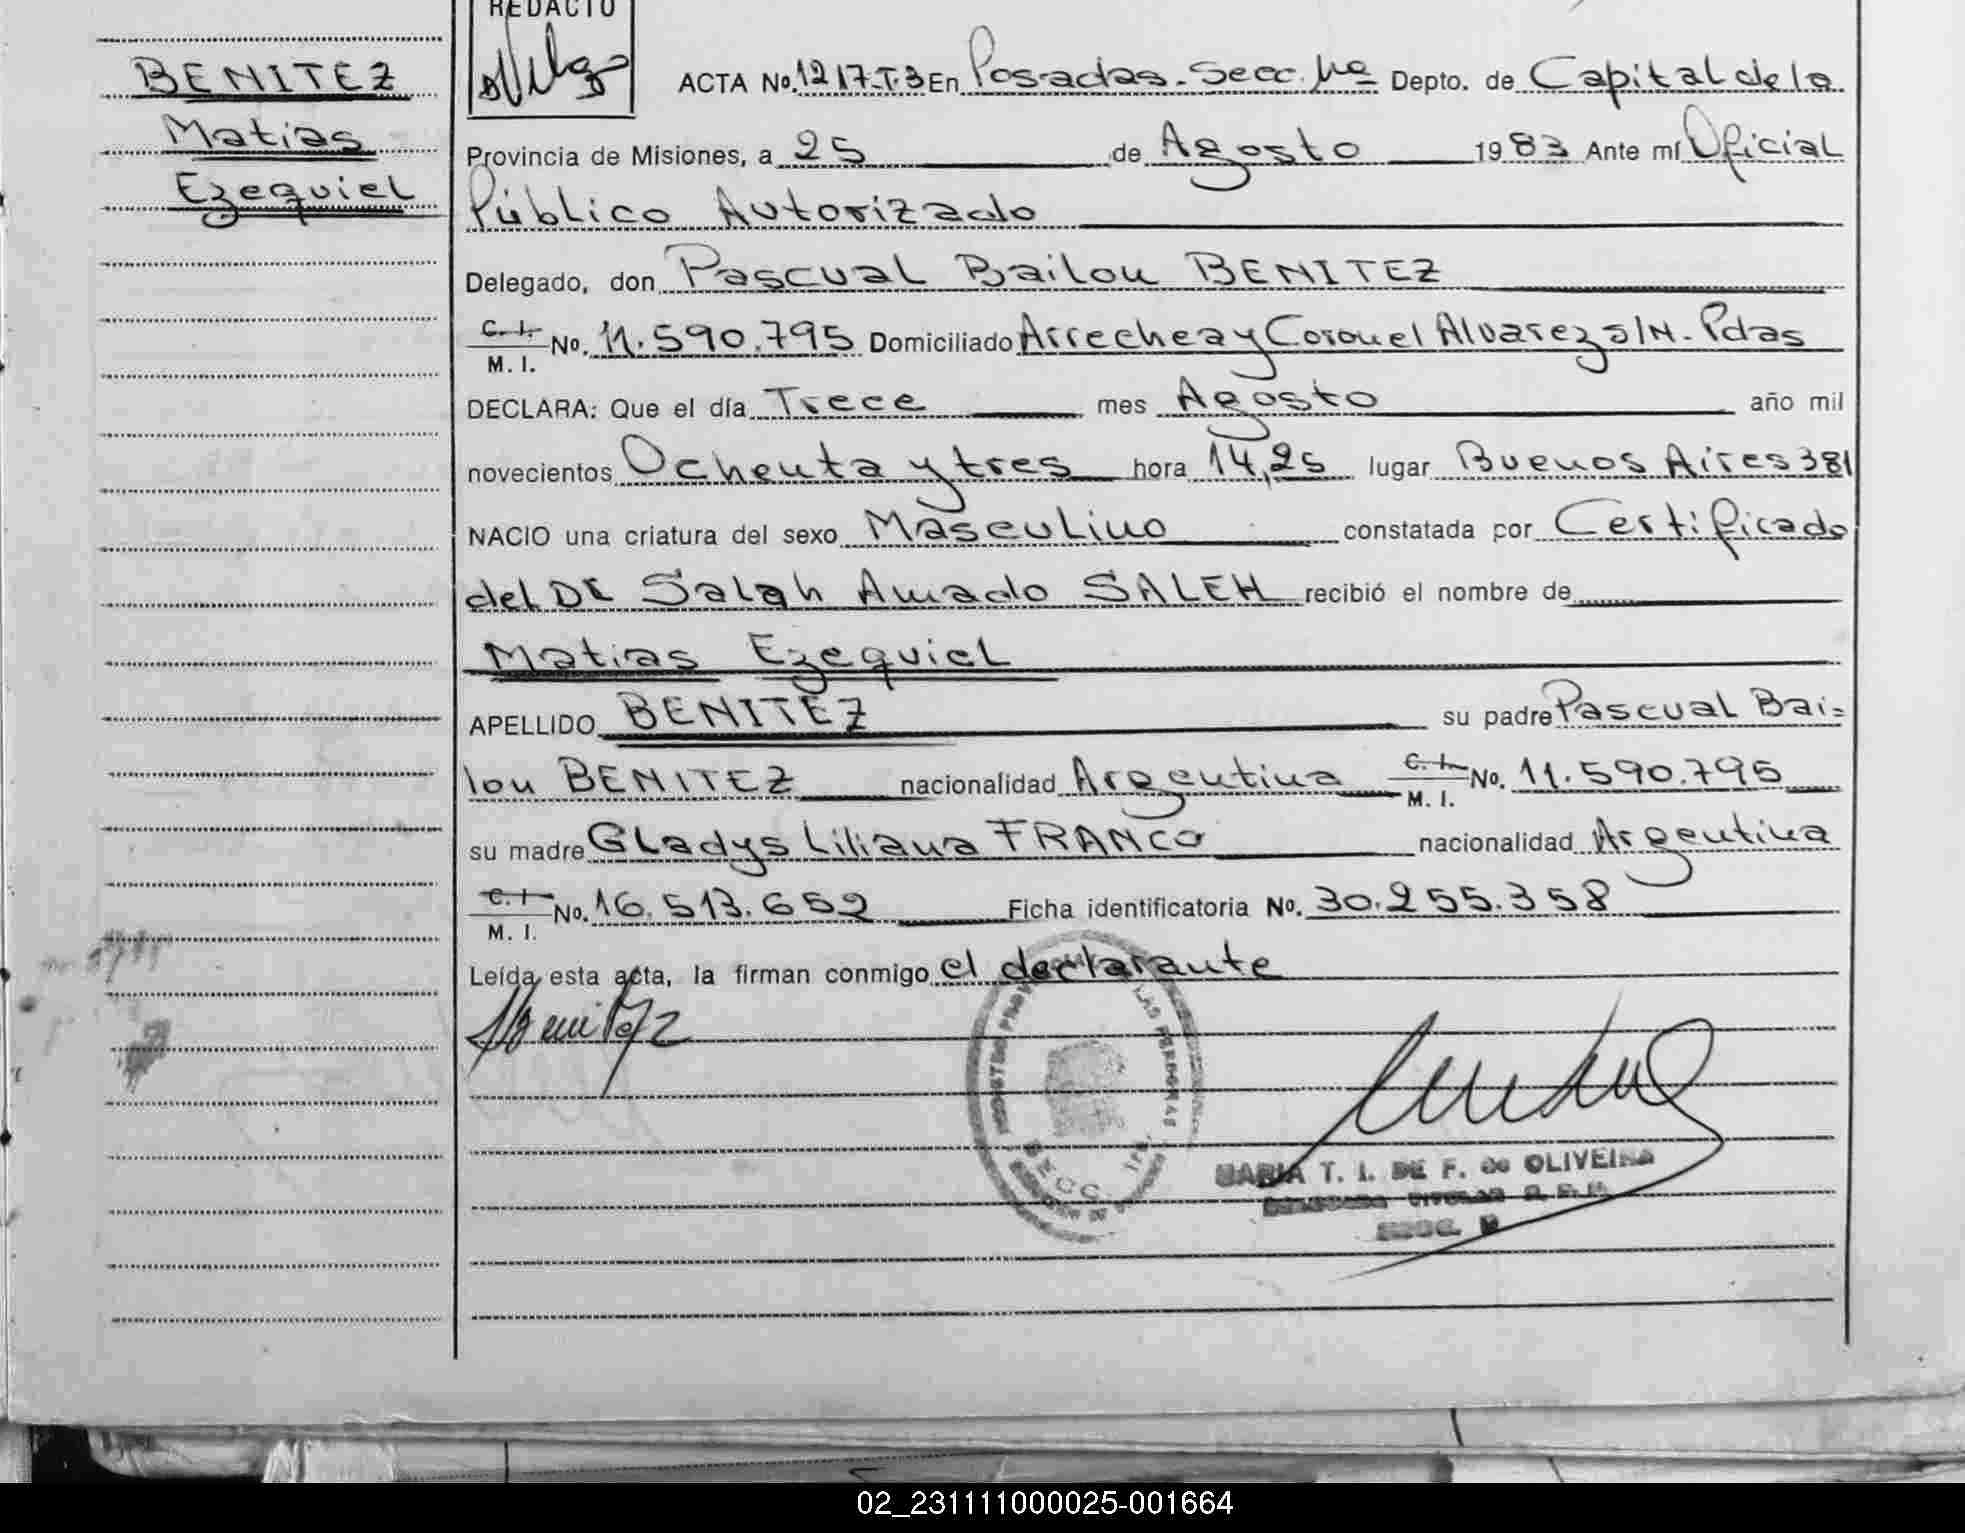 BENITEZ
Matias
Ezequiel
REDACTO
ACTA No. 1217-T.3 En Posadas-Secc. 11ª Depto. de Capital de la
Provincia de Misiones, a 25 de Agosto 1983 Ante mí Oficial
Público Autorizado
Delegado, don Pascual Bailon BENITEZ
C. I.
M. I. No. 11.590.795 Domiciliado Arrechea y Coronel Alvarez s/N. Pdas
DECLARA: Que el día Trece mes Agosto año mil
novecientos Ochenta y tres hora 14,25 lugar Buenos Aires 381
NACIO una criatura del sexo Masculino constatada por Certificado
del Dr Salah Amado SALEH recibió el nombre de
Matias Ezequiel
APELLIDO BENITEZ su padre Pascual Bai=
lon BENITEZ nacionalidad Argentina C. I.
M. I. No. 11.590.795
su madre Gladys Liliana FRANCO nacionalidad Argentina
C. I.
M. I. No. 16.513.652 Ficha identificatoria No. 30.255.358
Leída esta acta, la firman conmigo el declarante
Benitez
LAS PERSONAS
SECC.
MARIA T. I. DE F. de OLIVEIRA
TITULAR
SECC.
02_231111000025-001664